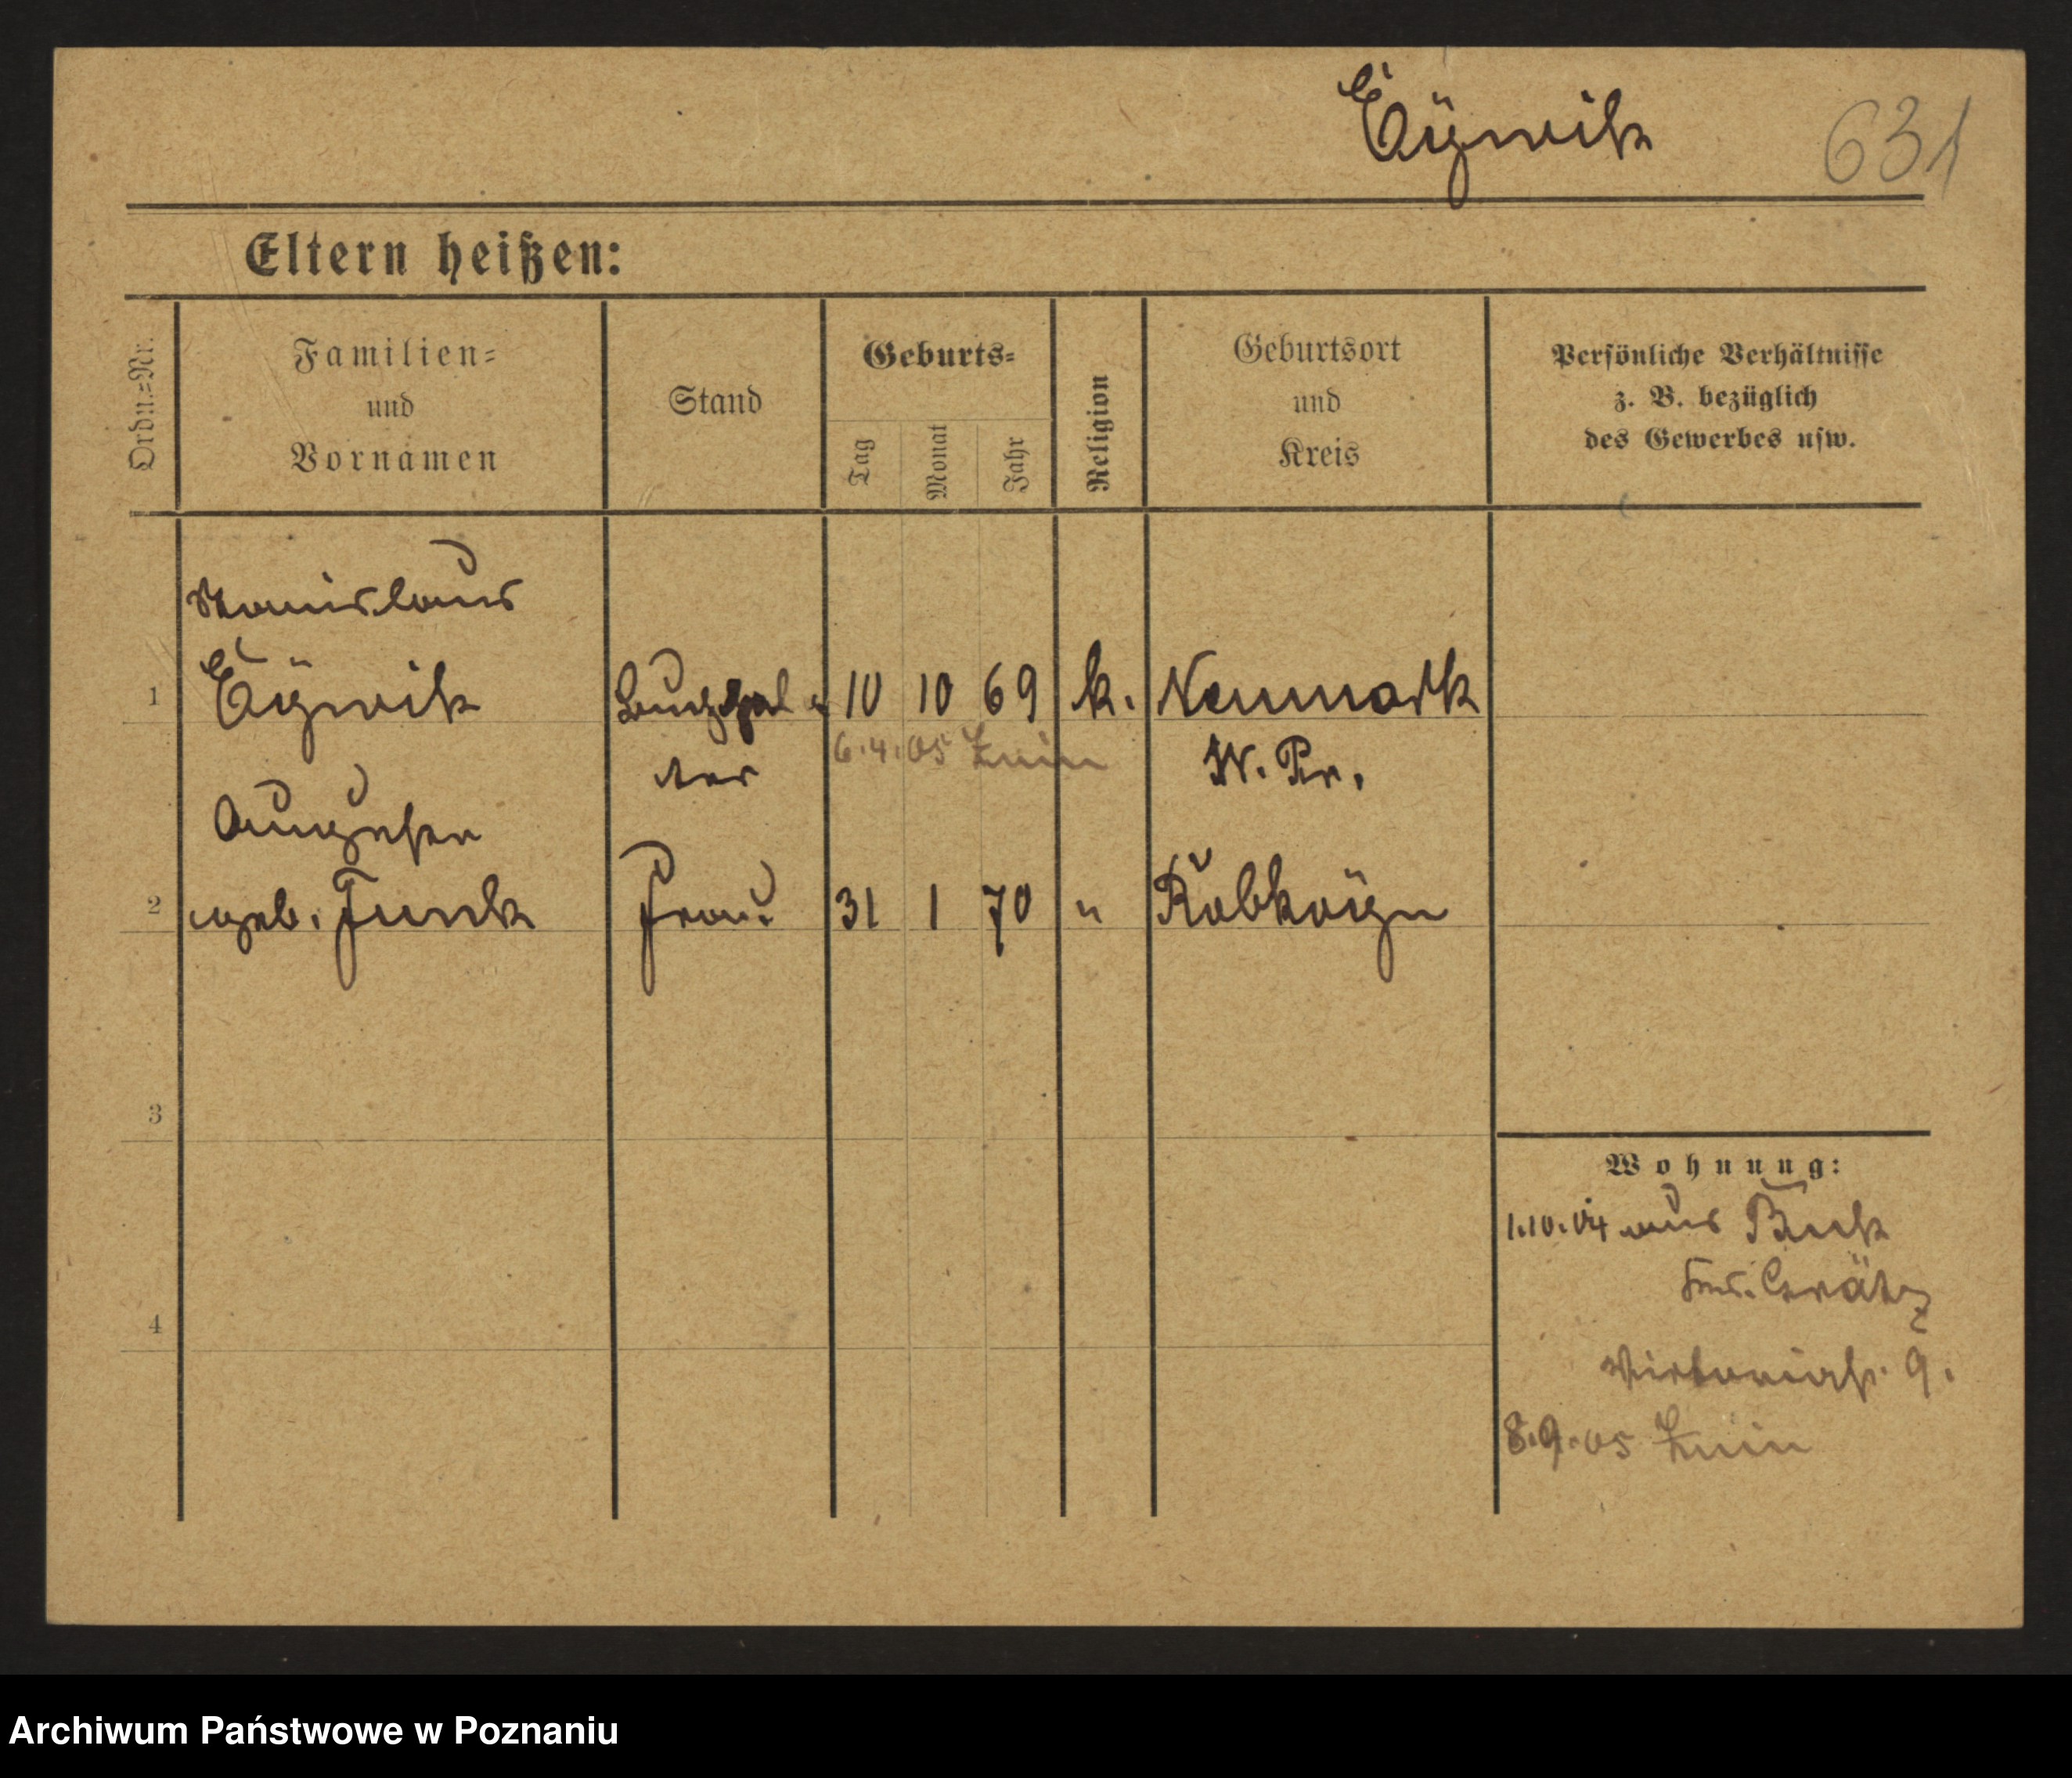 631
Eltern heißen:
Ordn.=Nr.
Familien=
und
Vornamen
Stand
Geburts=
Tag
Monat
Jahr
Religion
Geburtsort
und
Kreis
Persönliche Verhältnisse
z. B. bezüglich
des Gewerbes usw.
Stanislaus
1
10 10 69 k. Neumark
6.4.05 Znin
W. Pr.
2 geb. Funck Frau 31 1 70 "
3
Wohnung:
1.10.04 aus Buk
Grätz
4
Victoriastr. 9.
8.9.05 Znin
Archiwum Państwowe w Poznaniu